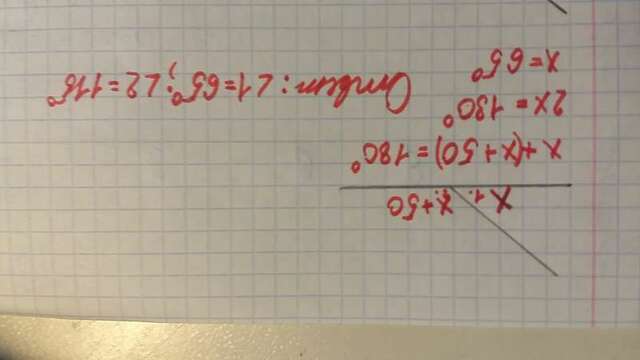 x 1. x+50
x+(x+50)=180°
2x=130°
x=65°
Ответ: <1=65°; <2=115°